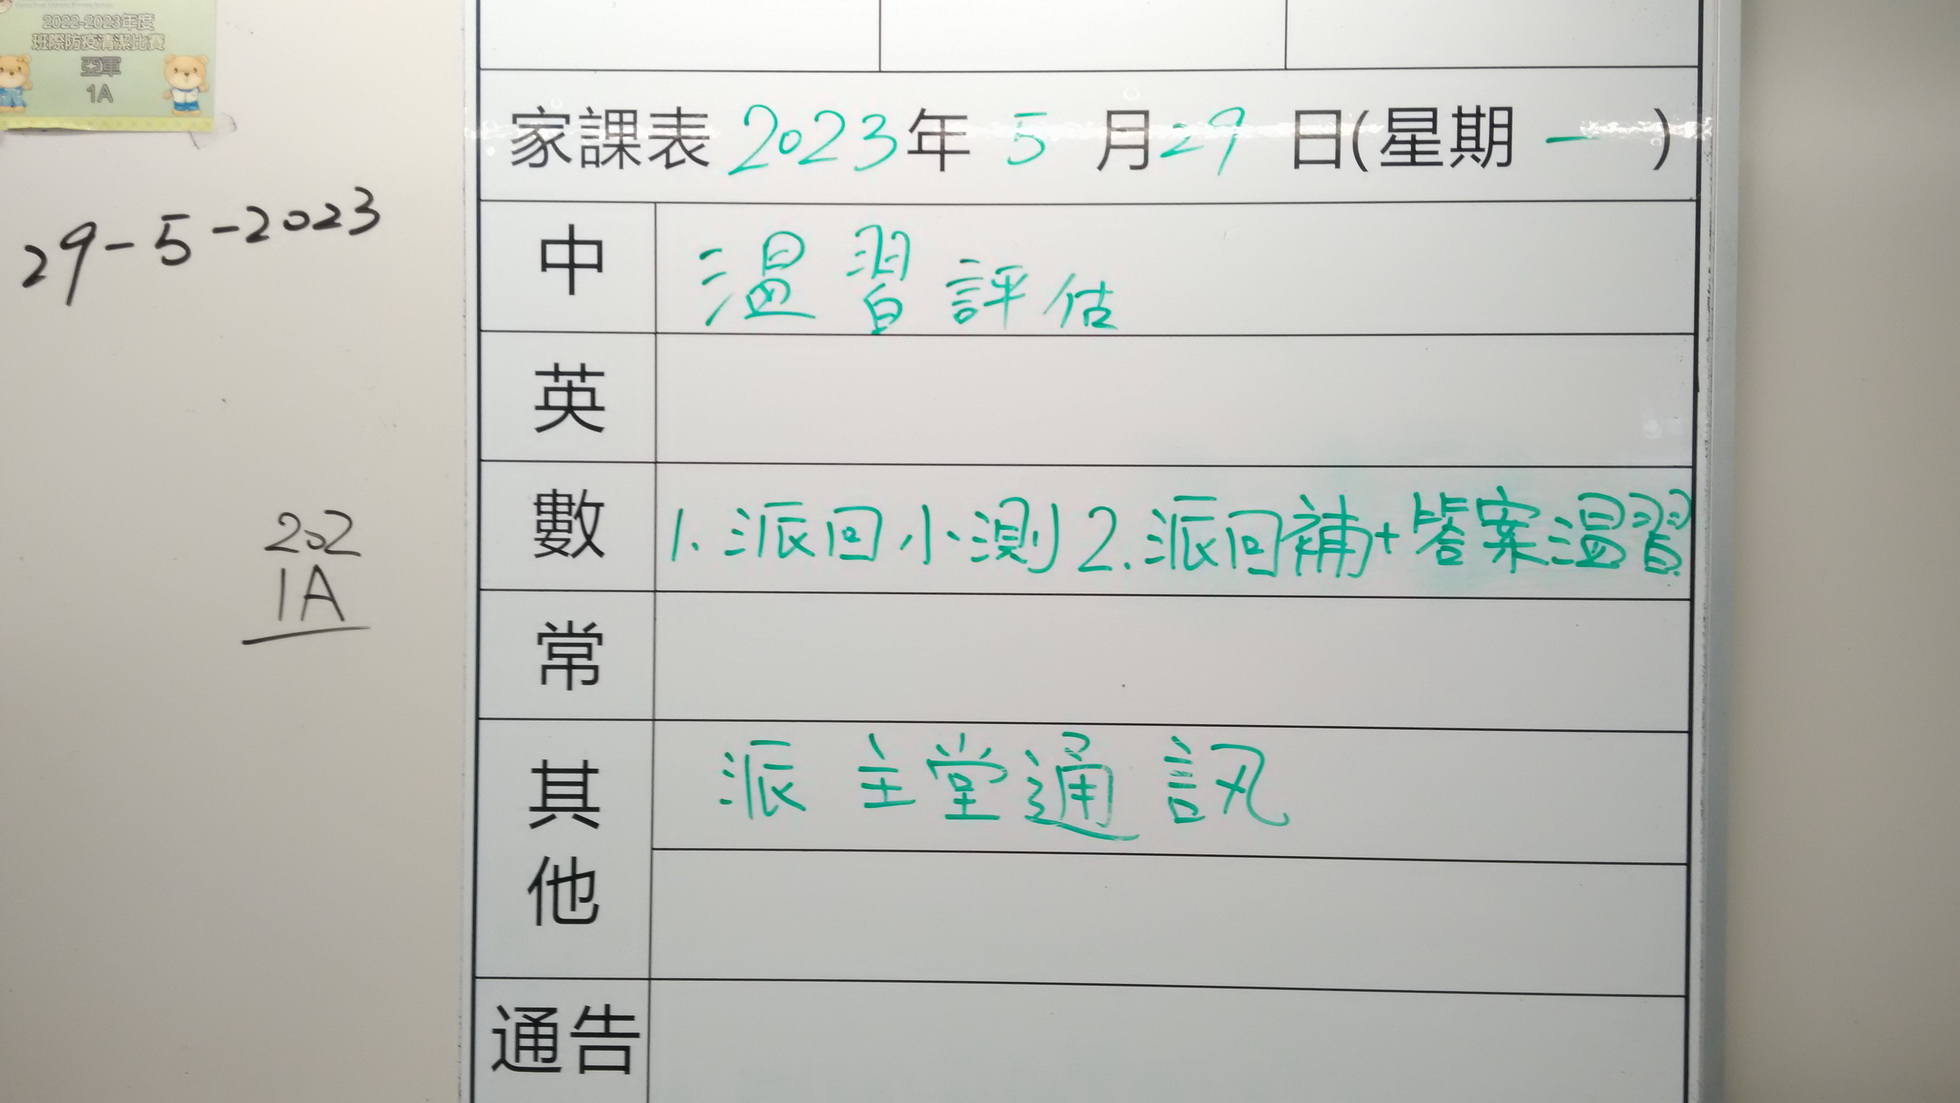 2022-2023年度
班際防疫清潔比賽
亞軍
1A
29-5-2023
202
1A
家課表 2023年 5 月 29 日(星期 一 )
中 温習評估
英
數 1. 派回小測 2. 派回補+答案温習
常
其他 派主堂通訊
通告